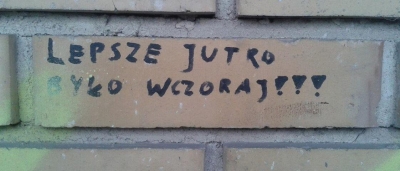 LEPSZE JUTRO
BYŁO WCZORAJ!!!